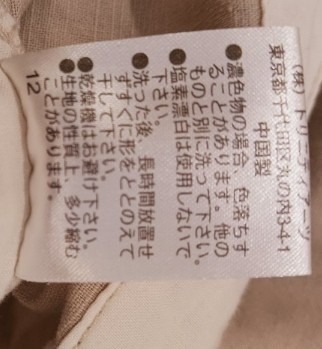 (株)トリニティアーツ
東京都千代田区丸の内3-4-1
中国製
●濃色物の場合、色落ちす
ることがあります。他の
ものと別に洗って下さい。
●塩素漂白は使用しないで
下さい。
●洗った後、長時間放置せ
ずすぐに形をととのえて
干して下さい。
●乾燥機はお避け下さい。
●生地の性質上、多少縮む
ことがあります。
12